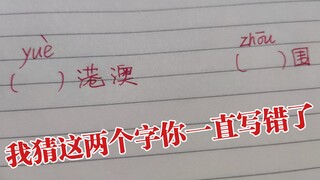 yuè zhōu
( )港澳 ( )围
我猜这两个字你一直写错了